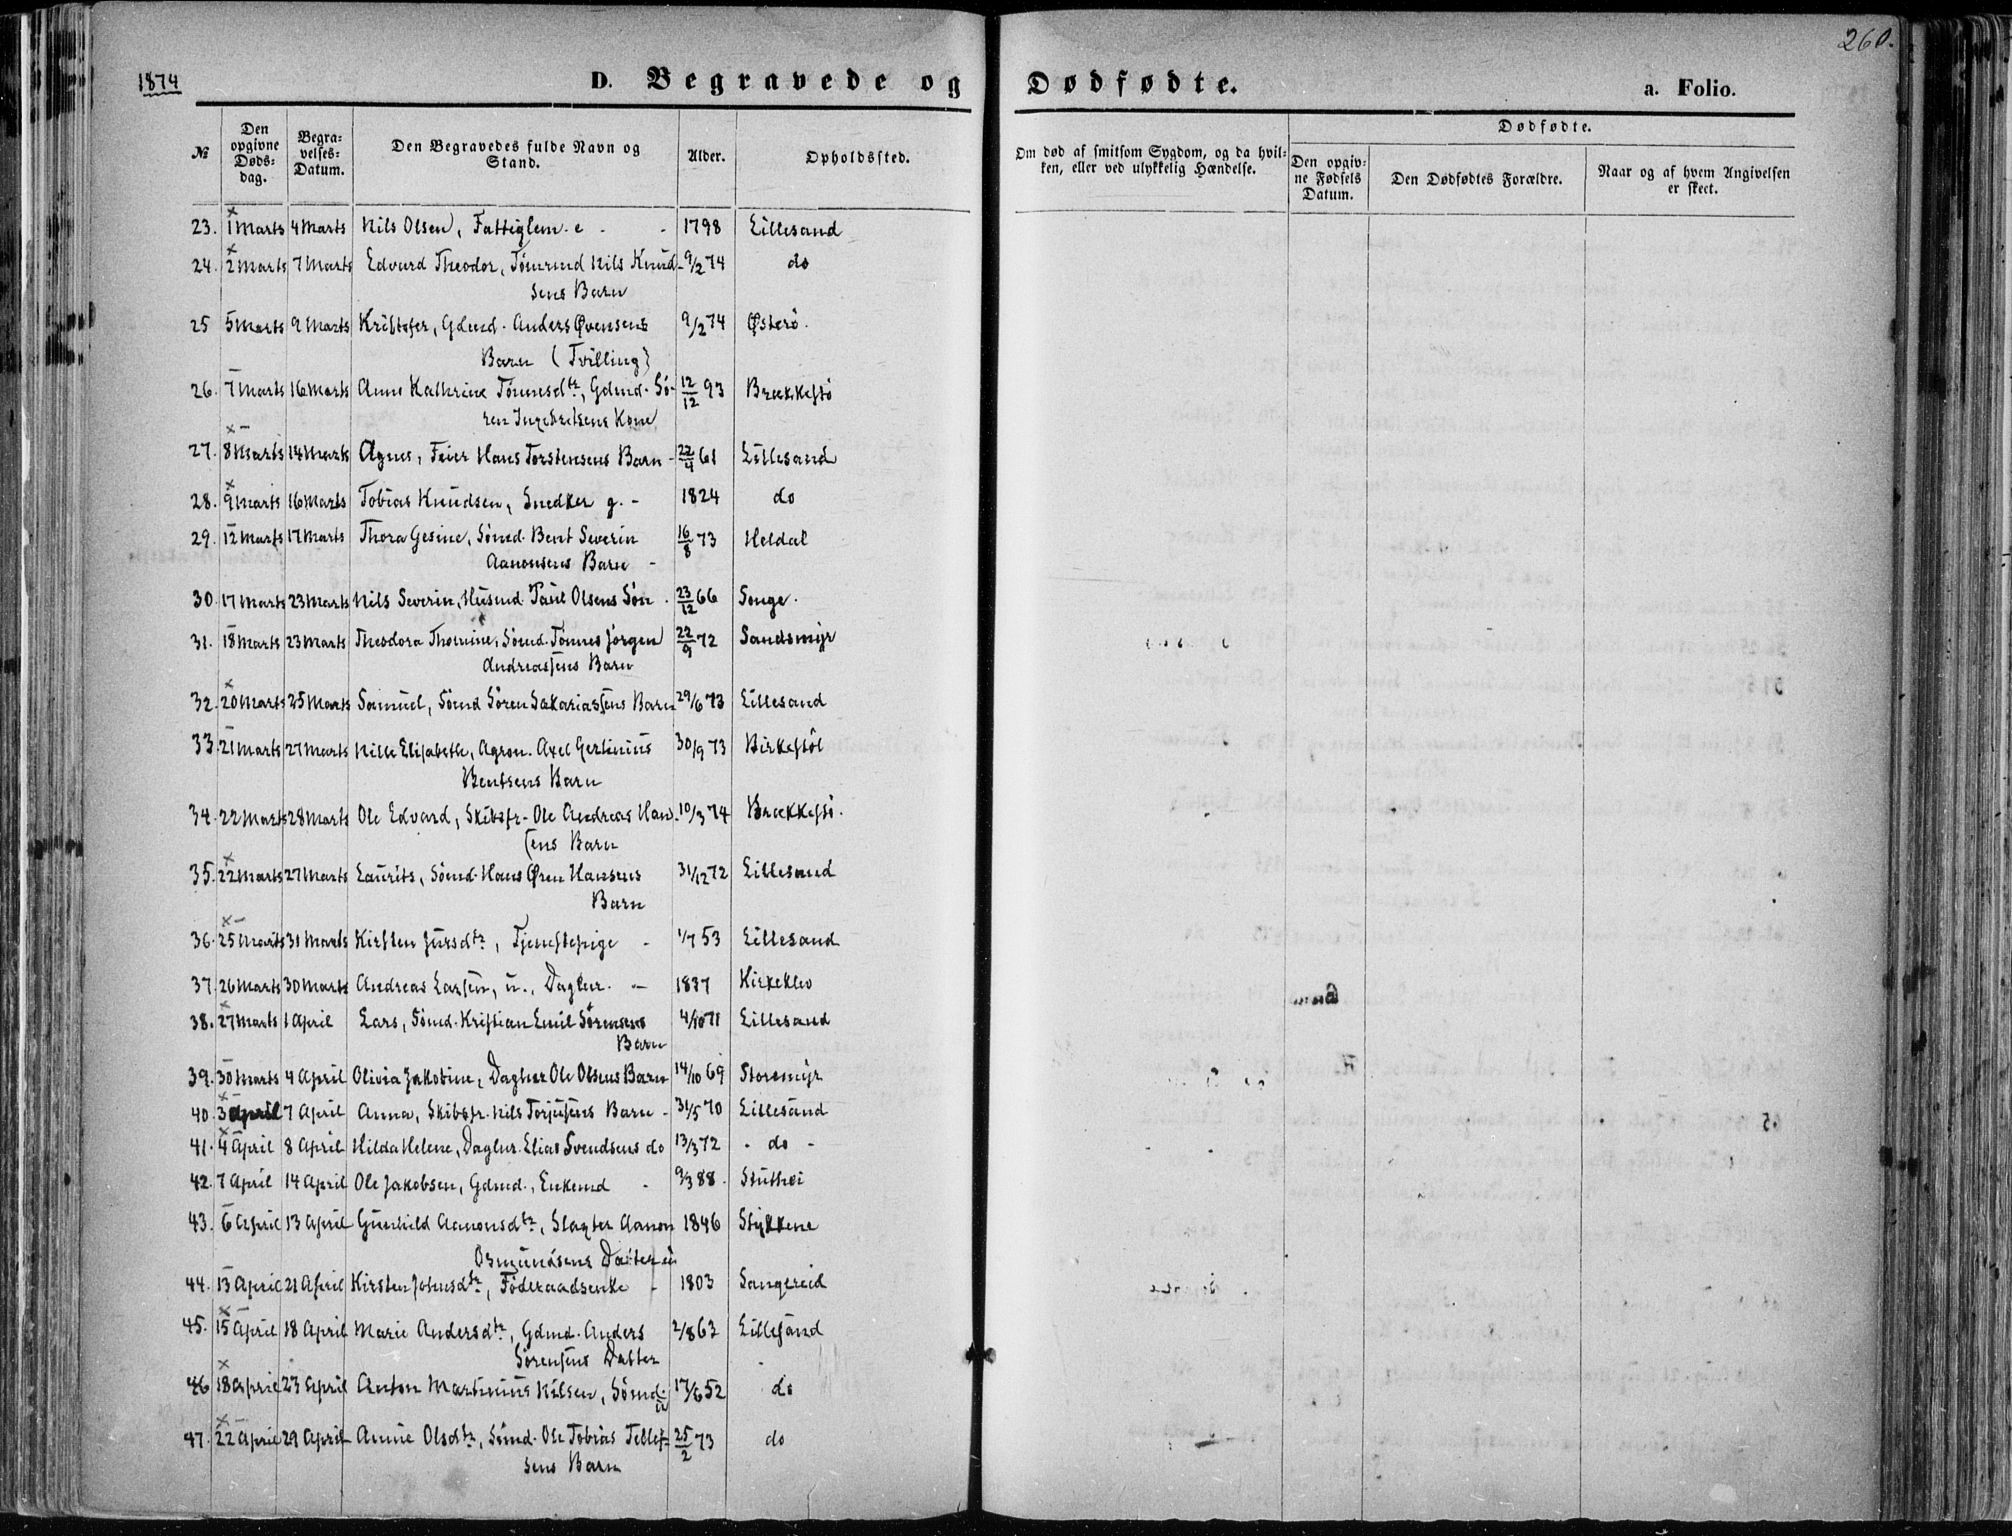 260.
1874
D. Begravede og Dødfødte.
a. Folio.
№ Den opgivne Døds-dag. Begra-velses-Datum. Den Begravedes fulde Navn og Stand. Alder. Opholdssted. Om død af smitsom Sygdom, og da hvil-ken, eller ved ulykkelig Hændelse. Dødfødte. Den opgiv-ne Fødsels Datum. Den Dødfødtes Forældre. Naar og af hvem Angivelsen er skeet.
23. 1 Marts 4 Marts Nils Olsen, Fattiglem. e - - 1798 Lillesand
24. 2 Marts 7 Marts Edvard Theodor, Tömmd Nils Knud- 9/2 74 do
sens Barn
25 5 Marts 9 Marts Kristofer, Gdmd. Anders Øvensens 9/2 74 Østerö.
Barn (Tvilling)
26. 7 Marts 16 Marts Anne Kathrine Tönnesdtr, Gdmd. Sö- 12/12 93 Brækkestö
ren Ingebretsens Kone
27. 8 Marts 14 Marts Agnes, Feier Hans Torstensens Barn - 22/4 61 Lillesand
28. 9 Marts 16 Marts Tobias Knudsen, Snedker g. - 1824 do
29. 12 Marts 17 Marts Thora Gesine, Sömd. Bent Severin 16/8 73 Heldal
Aanonsens Barn -
30. 17 Marts 23 Marts Nils Severin, Husmd. Paul Olsens Sön . 23/12 66 Songe.
31. 18 Marts 23 Marts Theodora Thomine, Sömd. Tönnes Jörgen 22/9 72 Sandsmyr
Andreassens Barn
32. 20 Marts 25 Marts Samuel, Sömd Sören Sakariassens Barn 29/6 73 Lillesand
33. 21 Marts 27 Marts Nille Elisabeth, Agron. Axel Gertinius 30/9 73 Birkestöl
Bentsens Barn
34. 22 Marts 28 Marts Ole Edvard, Skibsfr. Ole Andreas Han- 10/3 74 Brækkestö.
sens Barn
35. 22 Marts 27 Marts Laurits, Sömd. Hans Øren Hansens 31/12 72 Lillesand
Barn
36. 25 Marts 31 Marts Kirsten Jursdtr, Tjenestepige - 1/7 53 Lillesand
37. 26 Marts 30 Marts Andreas Larsen, u., Daglur. - 1837 Kirkeklev
38. 27 Marts 1 April Lars, Sömd. Kristian Emil Sörensens 4/10 71 Lillesand
Barn
39. 30 Marts 4 April Olivia Jakobine, Daglur Ole Olsens Barn 14/10 69 Storemyr
40. 3 April 7 April Anna, Skibsfr. Nils Torjusens Barn - 31/5 70 Lillesand
41. 4 April 8 April Hilda Helene, Daglur. Elias Svendsens do 13/3 72 - do -
42. 7 April 14 April Ole Jakobsen, Gdmd., Enkemd - 9/3 88. Stuthei
43. 6 April 13 April Gunhild Aanonsdtr, Slagter Aanon 1846 Stykkene
Osmundsens Datter u
44. 13 April 21 April Kirsten Johnsdtr, Föderaadsenke - 1803 Sangereid
45. 15 April 18 April Marie Andersdtr, Gdmd. Anders 2/8 63 Lillesand
Sörensens Datter
46 18 April 23 April Anton Martinius Nilsen, Sömd. u 17/6 52 do
47. 22 April 29 April Annie Olsdtr, Sömd. Ole Tobias Tellef- 25/2 73 do
sens Barn